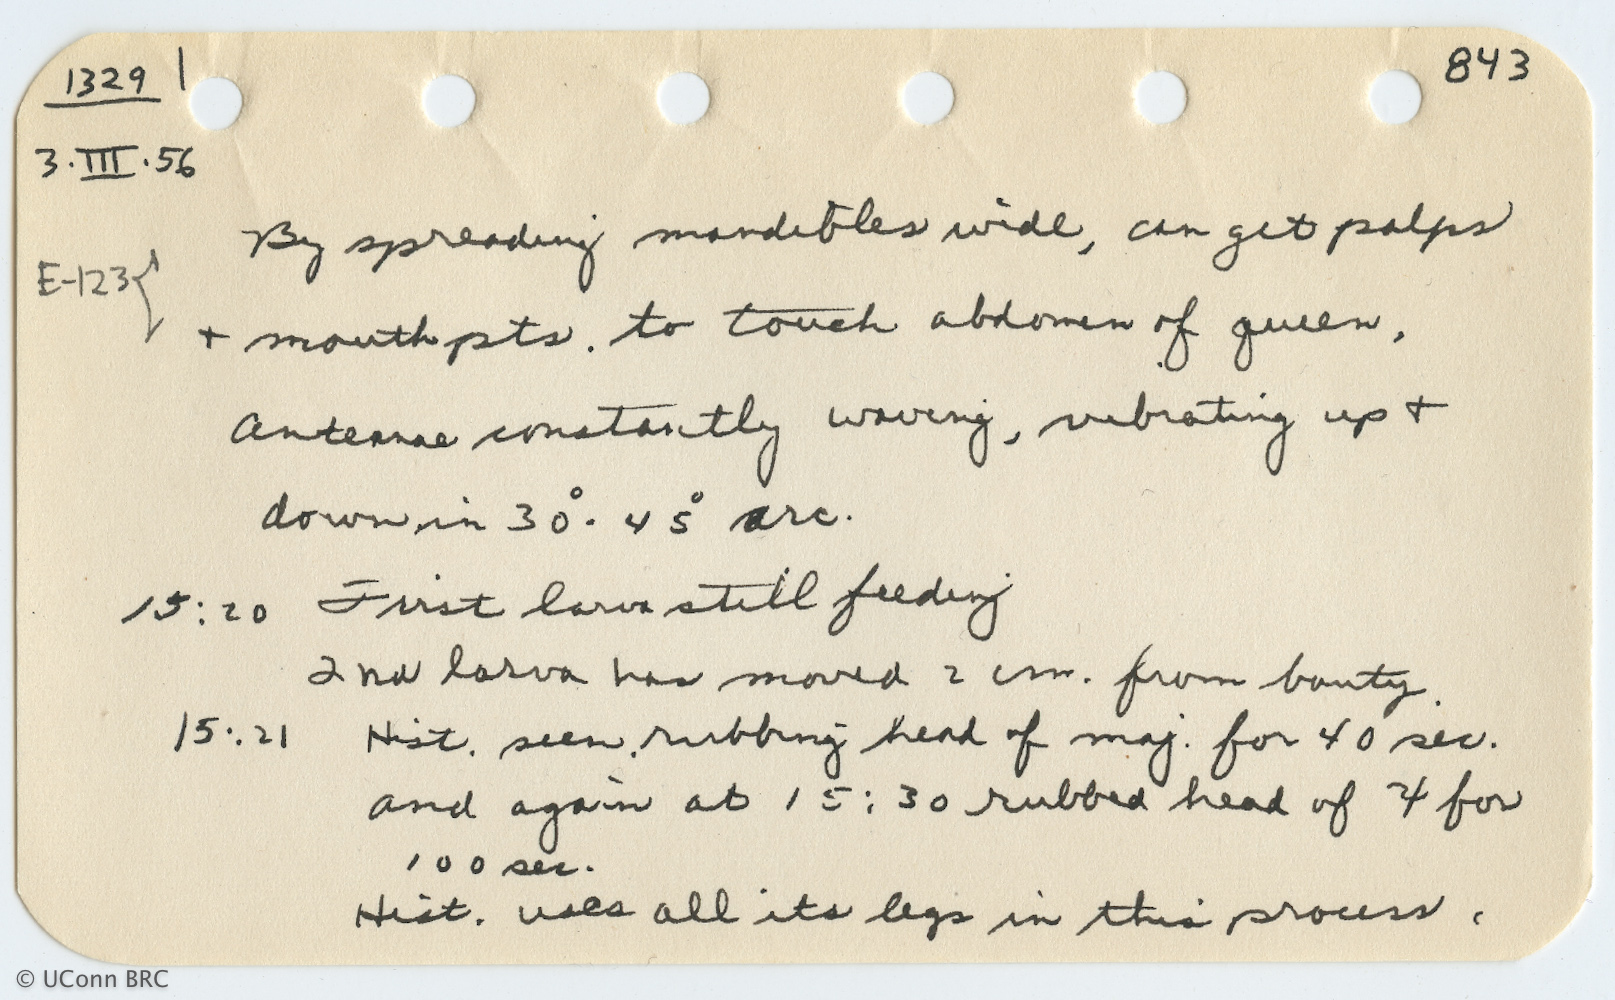 1329 | 843
3·III·56
By spreading mandibles wide, can get palps
E-123{
+ mouth pts. to touch abdomen of queen.
Antennae constantly waving, vibrating up +
down in 30°-45° arc.
15:20 First larva still feeding
2nd larva has moved 2 cm. from bouty.
15:21 Hist. seen rubbing head of maj. for 40 sec.
and again at 15:30 rubbed head of 4 for
100 sec.
Hist. uses all its legs in this process.
© UConn BRC